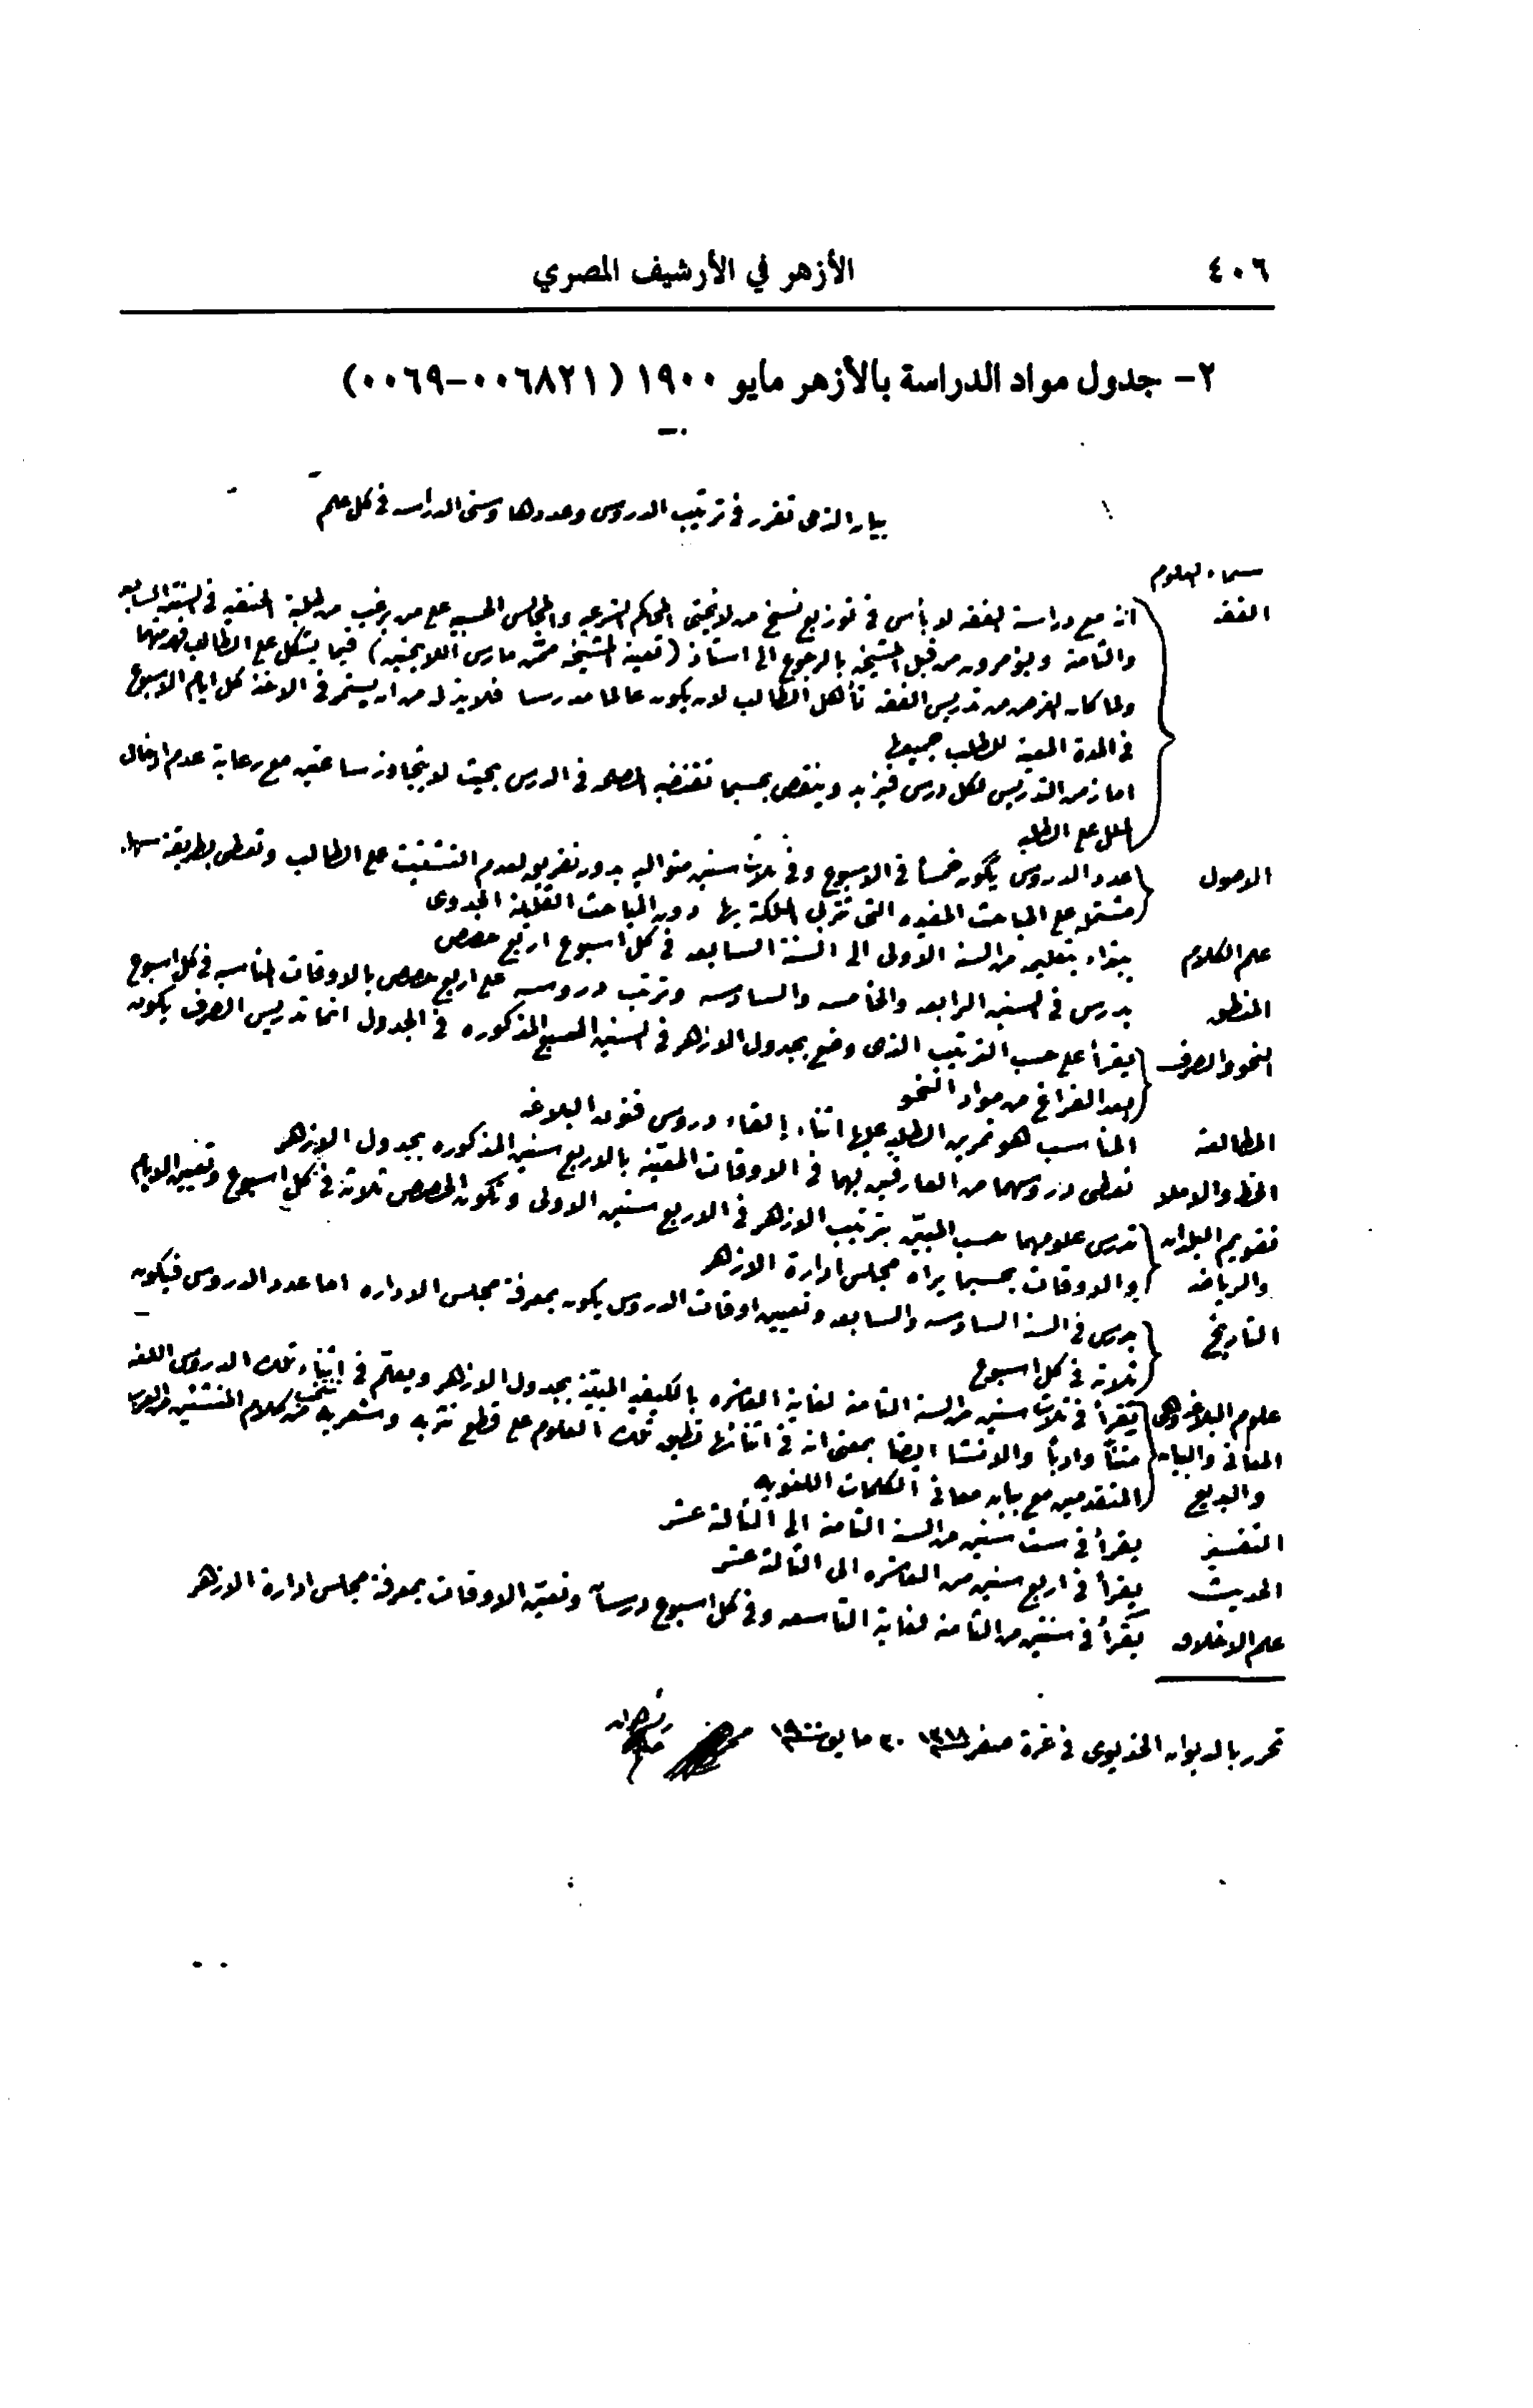 ٤٠٦ الأزهر في الأرشيف المصري
٢- جدول مواد الدراسة بالأزهر مايو ١٩٠٠ (٠٠٦٨٢١-٠٠٦٩)
بيان الذى تقرر فى ترتيب الدروس وعددها وسنى الدراسه فى كل علم
اسماء العلوم
الفقه انه مع دراسة الفقه لا بأس فى توزيع نسخ من لائحتى المحاكم الشرعيه والمجالس الحسبيه على من يرغب من طلبة الحنفيه فى السنتين السابعه
والثامنه ويؤمرون من قبل المشيخه بالرجوع الى استاذ (تعينه المشيخه ممن مارس اللائحتين) فيما يشكل على الطالب فهمه منهما
ولما كان الغرض من تدريس الفقه تأهل الطالب لان يكون عالما مدرسا فلا بد له من ان يستمر فى الاخذ كل ايام الاسبوع
فى المدة المعينه للطلب جميعها
اما زمن التدريس لكل درس فيزيد وينقص بحسبما تقتضيه المصلحه فى الدرس بحيث لا يتجاوز ساعتين مع رعاية عدم ادخال
الملل على الطلبه
الاصول عدد الدروس يكون خمساً فى الاسبوع وفى ثلاث سنين متواليه بدون تفريق لعدم التشتيت على الطالب وتعطى بطريقة سهله
مشتمله على المباحث المفيده التى تتربى الملكة بها دون المباحث القليلة الجدوى
علم الكلام يبتداء بتعليمه من السنه الاولى الى السنة السابعه فى كل اسبوع اربع حصص
المنطق يدرس فى السنين الرابعه والخامسه والسادسه وترتب دروسه على اربع حصص بالاوقات المناسبه فى كل اسبوع
النحو والصرف يقرأ على حسب الترتيب الذى وضع بجدول الازهر فى السنين السبع المذكوره فى الجدول انما تدريس الصرف يكون
بعد الفراغ من مواد النحو
المطالعه المناسب هو تمرين الطلبه عليها اثناء إلقاء دروس فنون البلاغه
الخط والاملا تعطى دروسهما من العارفين بهما فى الاوقات المعينه بالاربع سنين المذكوره بجدول الازهر
تقويم البلدان تدرس علومهما حسب المبين بترتيب الازهر فى الاربع سنين الاولى وتكون الحصص ثلاثة فى كل اسبوع وتعيين الايام
والرياضه والاوقات بحسبما يراه مجلس ادارة الازهر
التاريخ يدرس فى السنة السادسه والسابعه وتعيين اوقات الدروس يكون بمعرفة مجلس الاداره اما عدد الدروس فيكون
ثلاثة فى كل اسبوع
علوم البلاغه وهى يقرأ فى ثلاث سنين من السنة الثامنه لغاية العاشره بالكيفيه المبينه بجدول الازهر ويعلم فى اثناء تلك الدروس اللغه
المعانى والبيان متناً وادباً والانشا ايضا بمعنى انه فى اثنائها تطبق تلك العلوم على قطع نثريه وشعريه تنتخب من كلام المنشئين من العرب
والبديع المتقدمين مع بيان معانى الكلمات اللغويه
التفسير يقرأ فى ست سنين من السنة الثامنه الى الثالثة عشر
الحديث يقرأ فى اربع سنين من العاشره الى الثالثة عشر
علم الاخلاق يقرأ فى سنتين من الثامنه لغاية التاسعه وفى كل اسبوع درساً وتعين الاوقات بمعرفة مجلس ادارة الازهر
تحرر بالديوان الخديوى فى غرة صفر ١٣١٨ ٣٠ مايو سنة ١٩٠٠